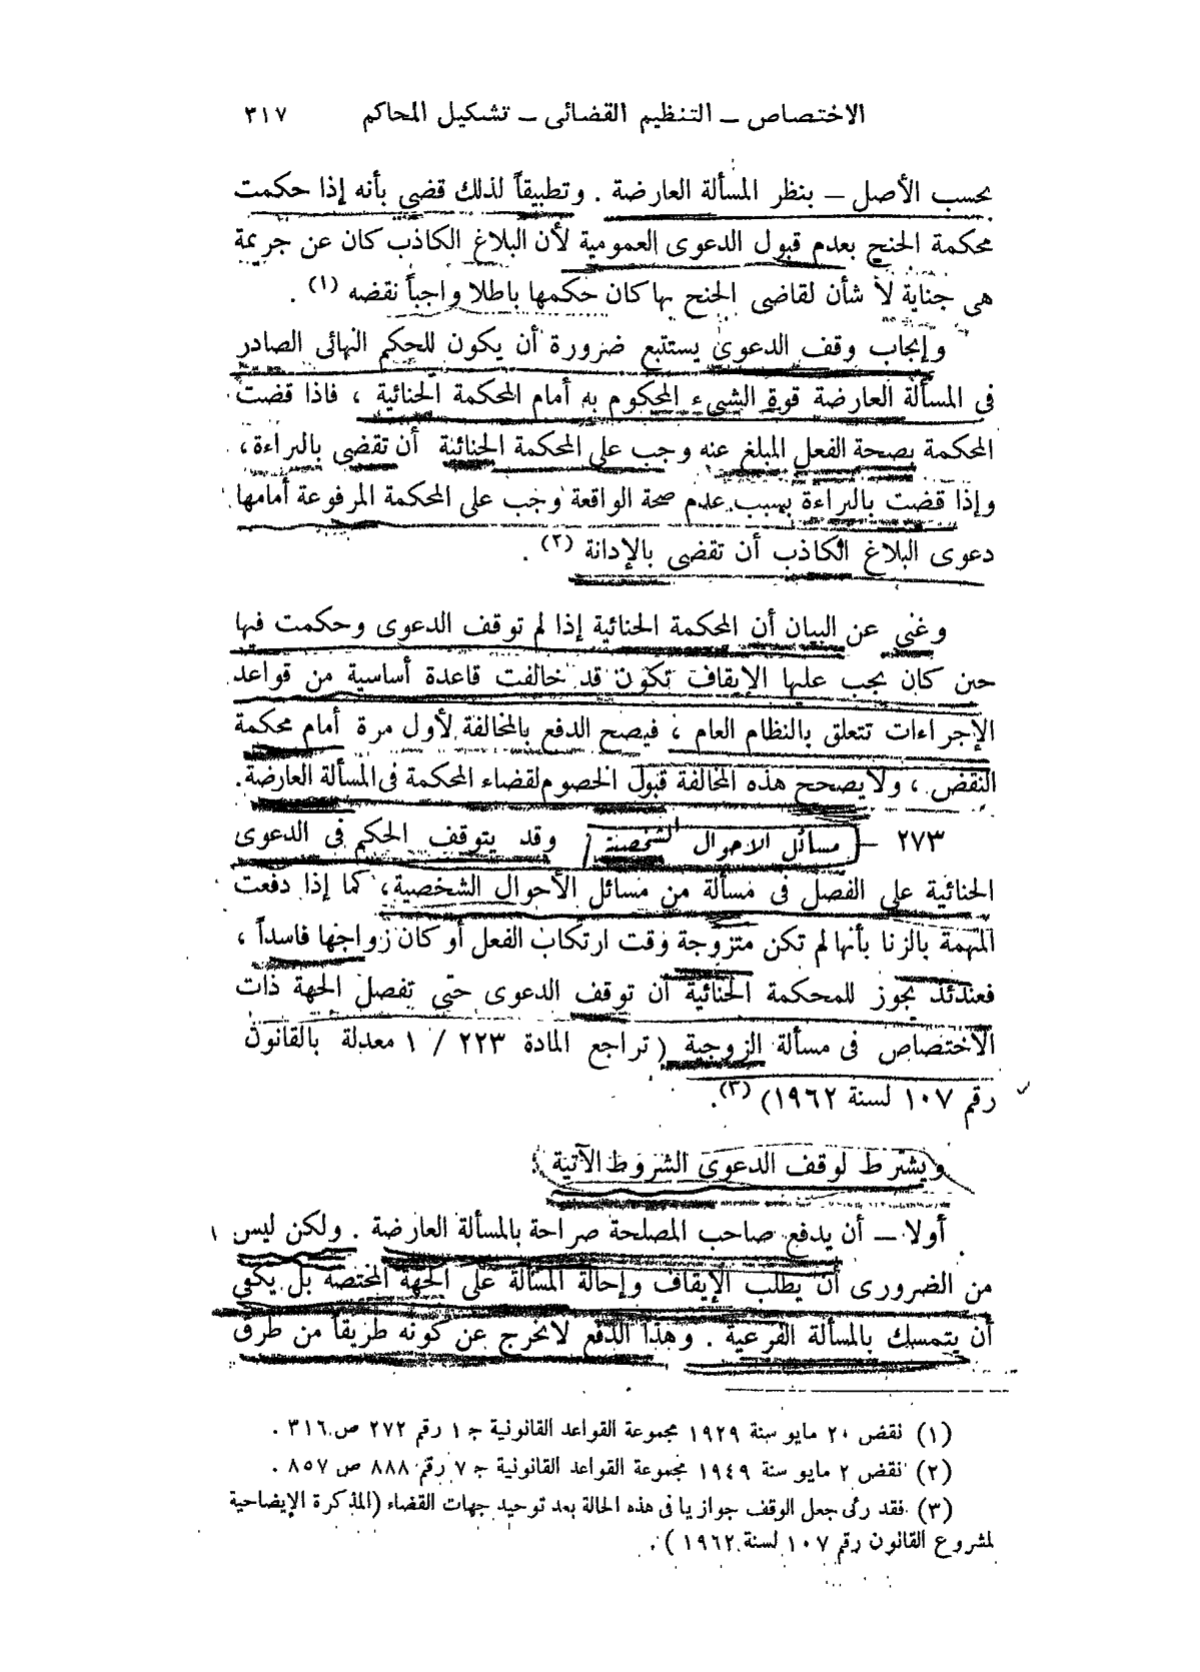 الاختصاص — التنظيم القضائى — تشكيل المحاكم ٣١٧
بحسب الأصل — بنظر المسألة العارضة . وتطبيقاً لذلك قضى بأنه إذا حكمت
محكمة الجنح بعدم قبول الدعوى العمومية لأن البلاغ الكاذب كان عن جريمة
هى جناية لا شأن لقاضى الجنح بها كان حكمها باطلا واجباً نقضه (١) .
وإيجاب وقف الدعوى يستتبع ضرورة أن يكون للحكم النهائى الصادر
فى المسألة العارضة قوة الشىء المحكوم به أمام المحكمة الجنائية ، فاذا قضت
المحكمة بصحة الفعل المبلغ عنه وجب على المحكمة الجنائية أن تقضى بالبراءة ،
وإذا قضت بالبراءة بسبب عدم صحة الواقعة وجب على المحكمة المرفوعة أمامها
دعوى البلاغ الكاذب أن تقضى بالإدانة (٢) .
وغنى عن البيان أن المحكمة الجنائية إذا لم توقف الدعوى وحكمت فيها
حين كان يجب عليها الإيقاف تكون قد خالفت قاعدة أساسية من قواعد
الإجراءات تتعلق بالنظام العام ، فيصح الدفع بالمخالفة لأول مرة أمام محكمة
النقض ، ولا يصحح هذه المخالفة قبول الخصوم لقضاء المحكمة فى المسألة العارضة .
٢٧٣ — مسائل الاحوال الشخصية / وقد يتوقف الحكم فى الدعوى
الجنائية على الفصل فى مسألة من مسائل الأحوال الشخصية ، كما إذا دفعت
المتهمة بالزنا بأنها لم تكن متزوجة وقت ارتكاب الفعل أو كان زواجها فاسداً ،
فعندئذ يجوز للمحكمة الجنائية أن توقف الدعوى حتى تفصل الجهة ذات
الاختصاص فى مسألة الزوجية ( تراجع المادة ٢٢٣ / ١ معدلة بالقانون
رقم ١٠٧ لسنة ١٩٦٢) (٣).
ويشترط لوقف الدعوى الشروط الآتية :
أولا — أن يدفع صاحب المصلحة صراحة بالمسألة العارضة . ولكن ليس
من الضرورى أن يطلب الإيقاف وإحالة المسألة على الجهة المختصة بل يكفى
أن يتمسك بالمسألة الفرعية . وهذا الدفع لا يخرج عن كونه طريقاً من طرق
(١) نقض ٢٠ مايو سنة ١٩٢٩ مجموعة القواعد القانونية ج ١ رقم ٢٧٢ ص ٣١٦ .
(٢) نقض ٢ مايو سنة ١٩٤٩ مجموعة القواعد القانونية ج ٧ رقم ٨٨٨ ص ٨٥٧ .
(٣) فقد رئى جعل الوقف جوازيا فى هذه الحالة بعد توحيد جهات القضاء (المذكرة الإيضاحية
لمشروع القانون رقم ١٠٧ لسنة ١٩٦٢ ) .